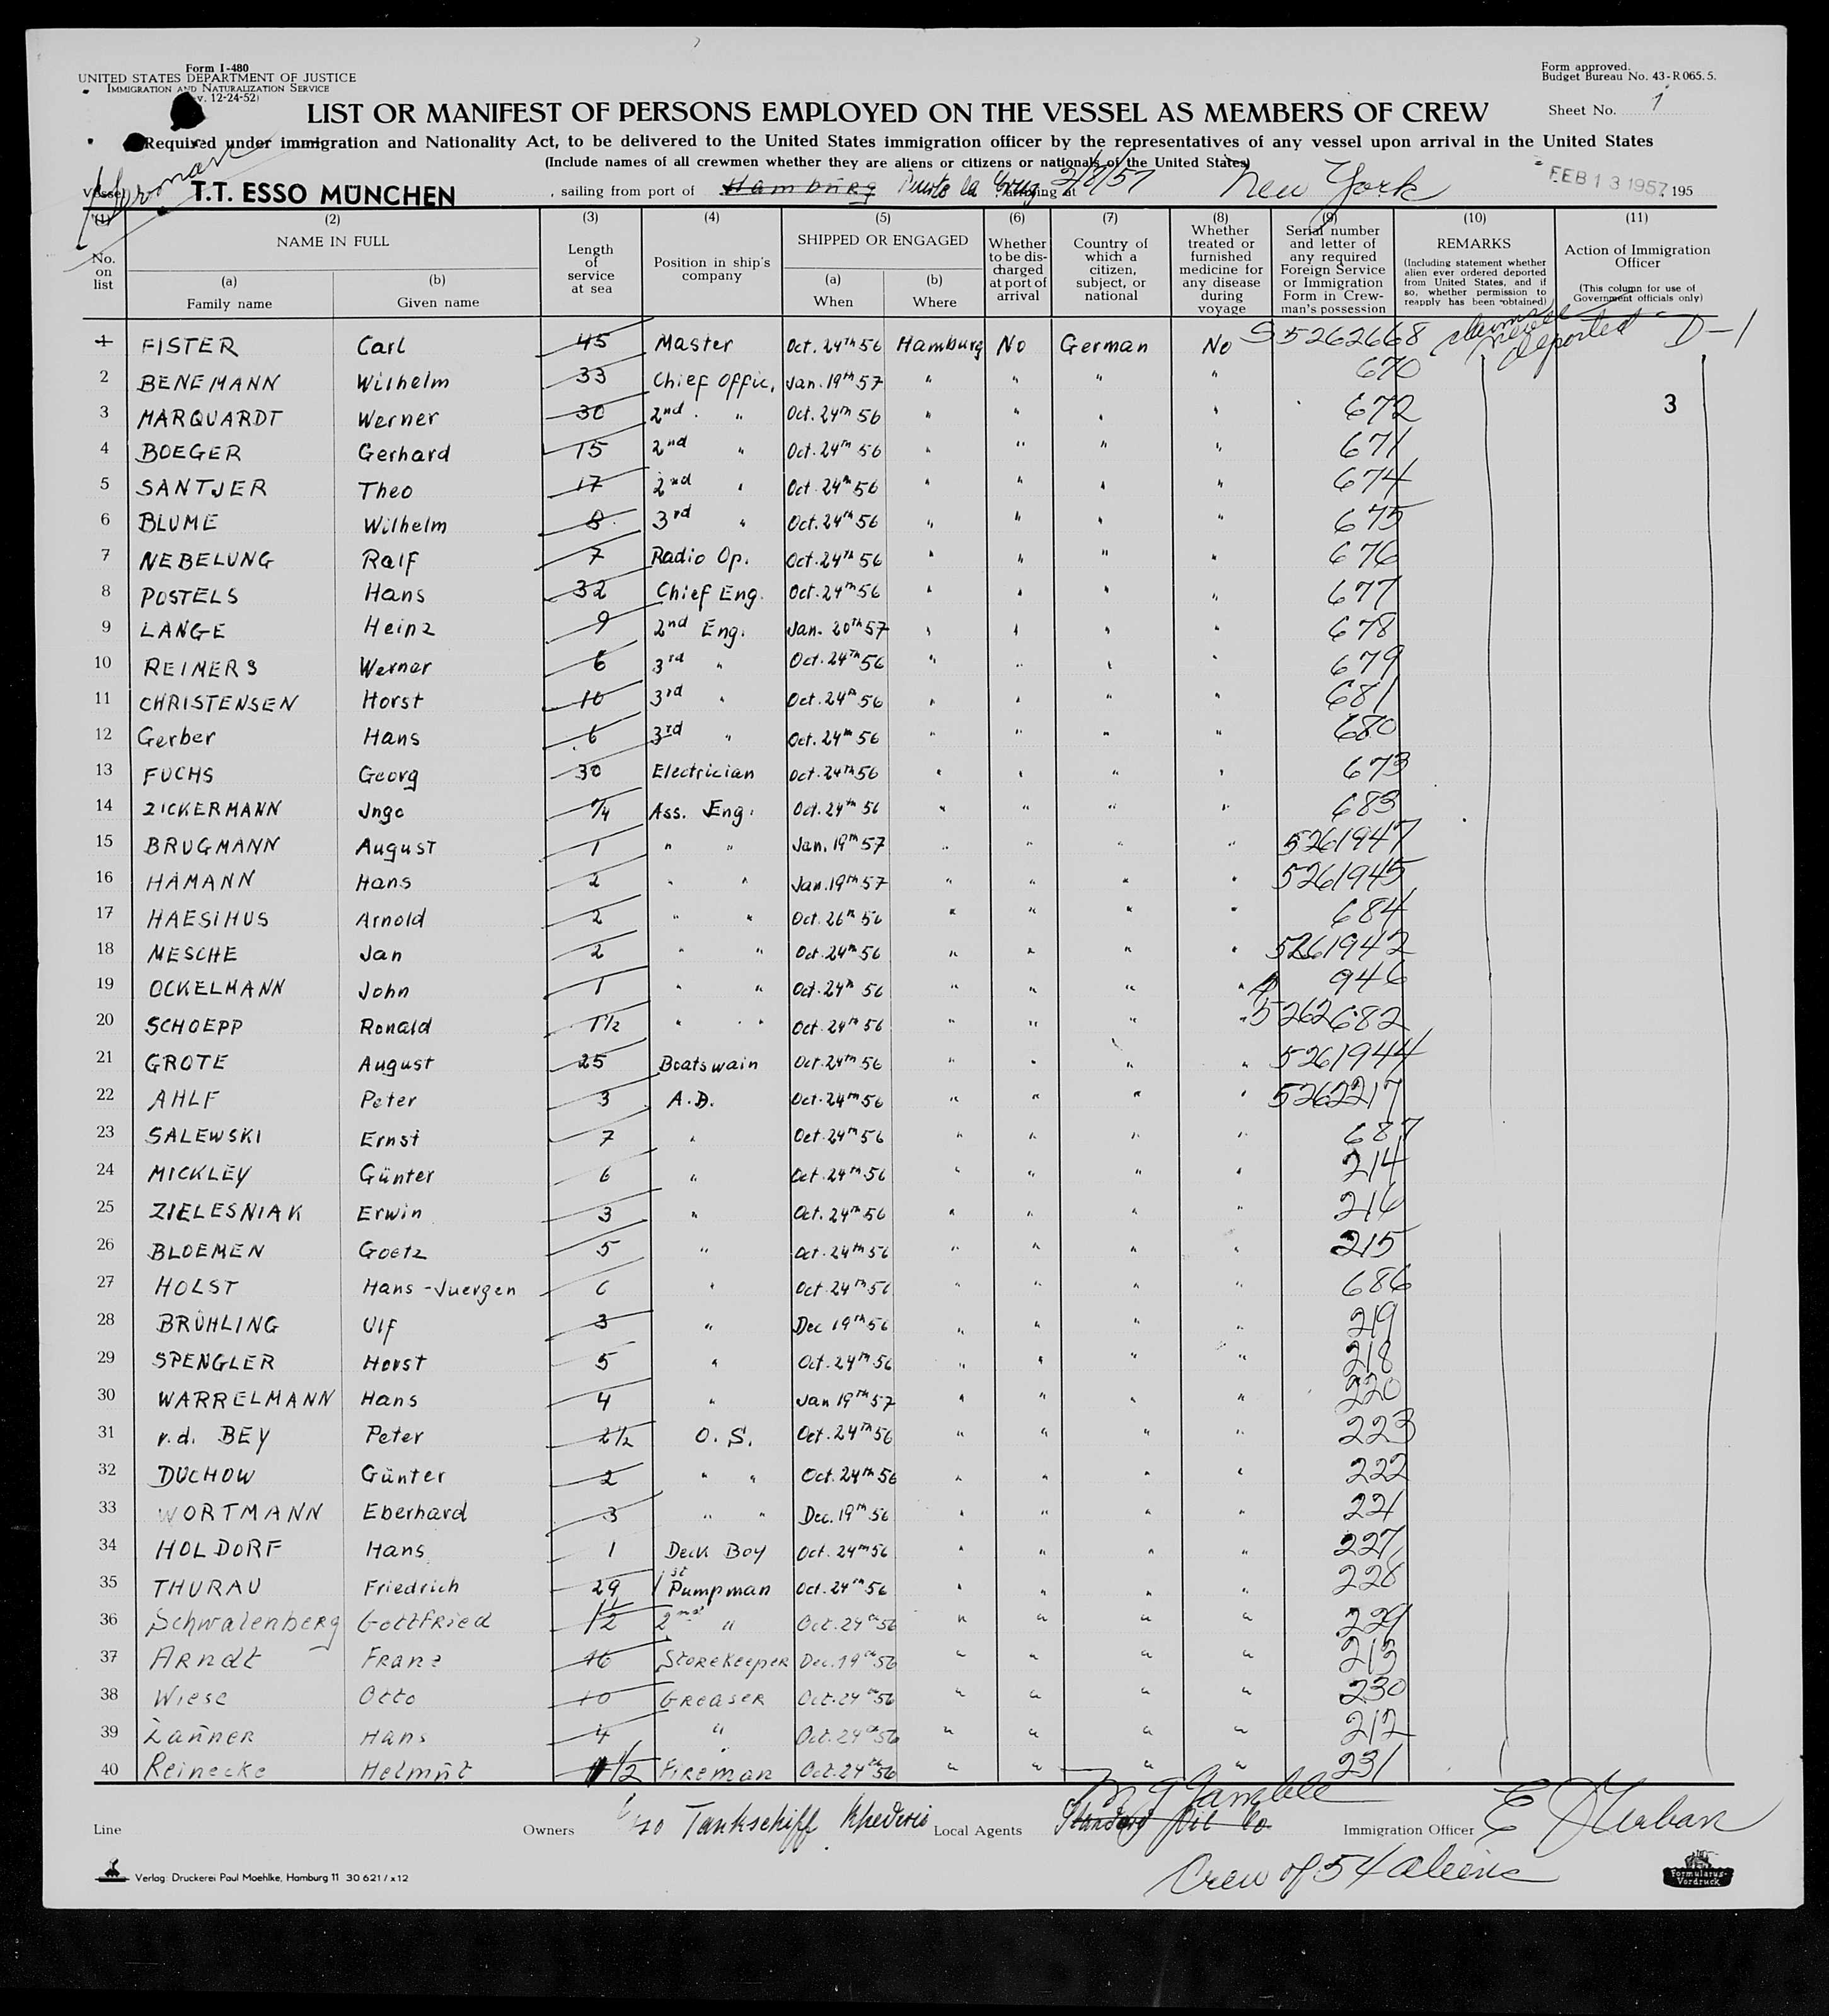 Form I-480
UNITED STATES DEPARTMENT OF JUSTICE
IMMIGRATION AND NATURALIZATION SERVICE
v. 12-24-52)
Form approved.
Budget Bureau No. 43-R065.5.
LIST OR MANIFEST OF PERSONS EMPLOYED ON THE VESSEL AS MEMBERS OF CREW
Sheet No. 1
Required under immigration and Nationality Act, to be delivered to the United States immigration officer by the representatives of any vessel upon arrival in the United States
(Include names of all crewmen whether they are aliens or citizens or nationals of the United States)
German
Vessel T.T. ESSO MÜNCHEN, sailing from port of Hamburg Punto la Cruz 2/7/57 arriving at New York FEB 13 1957 195
(1) (2) (3) (4) (5) (6) (7) (8) (9) (10) (11)
No. on list NAME IN FULL Length of service at sea Position in ship's company SHIPPED OR ENGAGED Whether to be discharged at port of arrival Country of which a citizen, subject, or national Whether treated or furnished medicine for any disease during voyage Serial number and letter of any required Foreign Service or Immigration Form in Crewman's possession REMARKS (Including statement whether alien ever ordered deported from United States, and if so, whether permission to reapply has been obtained) Action of Immigration Officer (This column for use of Government officials only)
(a) Family name (b) Given name (a) When (b) Where
1 FISTER Carl 45 Master Oct. 24th 56 Hamburg No German No S5262668 claims never deported D-1
2 BENEMANN Wilhelm 33 Chief Offic. Jan. 19th 57 " " " " 670
3 MARQUARDT Werner 30 2nd " Oct. 24th 56 " " " " 672 3
4 BOEGER Gerhard 15 2nd " Oct. 24th 56 " " " " 671
5 SANTJER Theo 17 2nd " Oct. 24th 56 " " " " 674
6 BLUME Wilhelm 8 3rd " Oct. 24th 56 " " " " 675
7 NEBELUNG Ralf 7 Radio Op. Oct. 24th 56 " " " " 676
8 POSTELS Hans 32 Chief Eng. Oct. 24th 56 " " " " 677
9 LANGE Heinz 9 2nd Eng. Jan. 20th 57 " " " " 678
10 REIMERS Werner 6 3rd " Oct. 24th 56 " " " " 679
11 CHRISTENSEN Horst 10 3rd " Oct. 24th 56 " " " " 681
12 Gerber Hans 6 3rd " Oct. 24th 56 " " " " 680
13 FUCHS Georg 30 Electrician Oct. 24th 56 " " " " 673
14 ZICKERMANN Jngo /4 Ass. Eng. Oct. 24th 56 " " " " 683
15 BRUGMANN August 1 " " Jan. 19th 57 " " " " 5261947
16 HAMANN Hans 2 " " Jan. 19th 57 " " " " 5261945
17 HAESIHUS Arnold 2 " " Oct. 26th 56 " " " " 684
18 MESCHE Jan 2 " " Oct. 24th 56 " " " " 5261942
19 OCKELMANN John 1 " " Oct. 24th 56 " " " " 946
20 SCHOEPP Ronald 1 1/2 " " Oct. 24th 56 " " " " 5262682
21 GROTE August 25 Boatswain Oct. 24th 56 " " " " 5261944
22 AHLF Peter 3 A.B. Oct. 24th 56 " " " " 5262217
23 SALEWSKI Ernst 7 " Oct. 24th 56 " " " " 687
24 MICKLEY Günter 6 " Oct. 24th 56 " " " " 214
25 ZIELESNIAK Erwin 3 " Oct. 24th 56 " " " " 216
26 BLOEMEN Goetz 5 " Oct. 24th 56 " " " " 215
27 HOLST Hans-Juergen 6 " Oct. 24th 56 " " " " 686
28 BRÜHLING Ulf 3 " Dec 19th 56 " " " " 219
29 SPENGLER Horst 5 " Oct. 24th 56 " " " " 218
30 WARRELMANN Hans 4 " Jan 19th 57 " " " " 220
31 v.d. BEY Peter 2 1/2 O. S. Oct. 24th 56 " " " " 223
32 DUCHOW Günter 2 " " Oct. 24th 56 " " " " 222
33 WORTMANN Eberhard 3 " " Dec. 19th 56 " " " " 221
34 HOLDORF Hans 1 Deck Boy Oct. 24th 56 " " " " 227
35 THURAU Friedrich 29 1st Pumpman Oct. 24th 56 " " " " 228
36 Schwalenberg Gottfried 2nd " Oct. 24th 56 " " " " 229
37 Arndt Franz 16 Storekeeper Dec. 19th 56 " " " " 213
38 Wiese Otto 10 Greaser Oct. 24th 56 " " " " 230
39 Lanner Hans 4 " Oct. 24th 56 " " " " 212
40 Reinecke Helmut 1/2 Fireman Oct. 24th 56 " " " " 231
Line Owners Esso Tankschiff Rhederei Local Agents M G Gamble Standard Oil Co. Immigration Officer
Crew of 54 aliens
Verlag: Druckerei Paul Moehlke, Hamburg 11 30 621 / x 12
Formularus-Vordruck